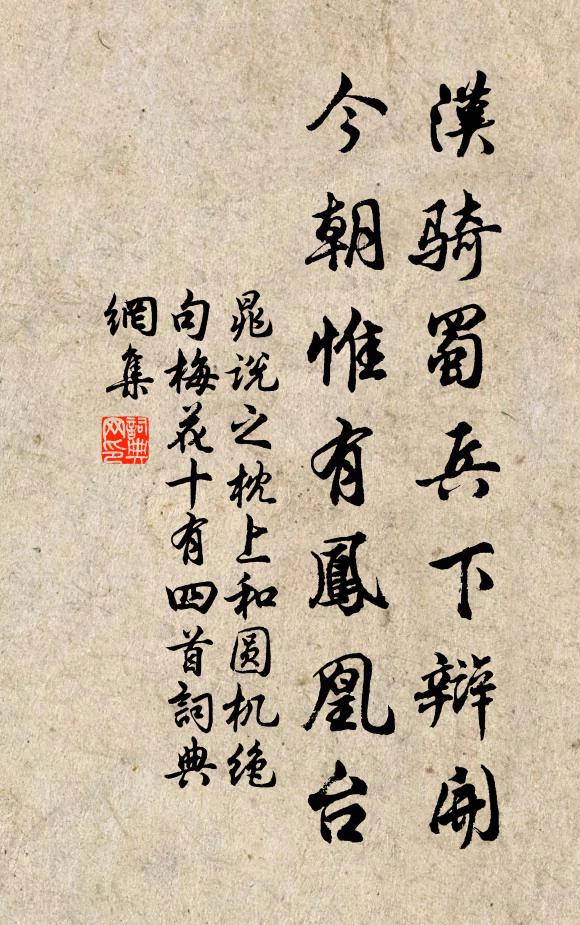 漢骑蜀兵下辩開
今朝惟有鳳凰台
晁说之枕上和圆机绝
句梅花十有四首詞典
網集
詞典
网印